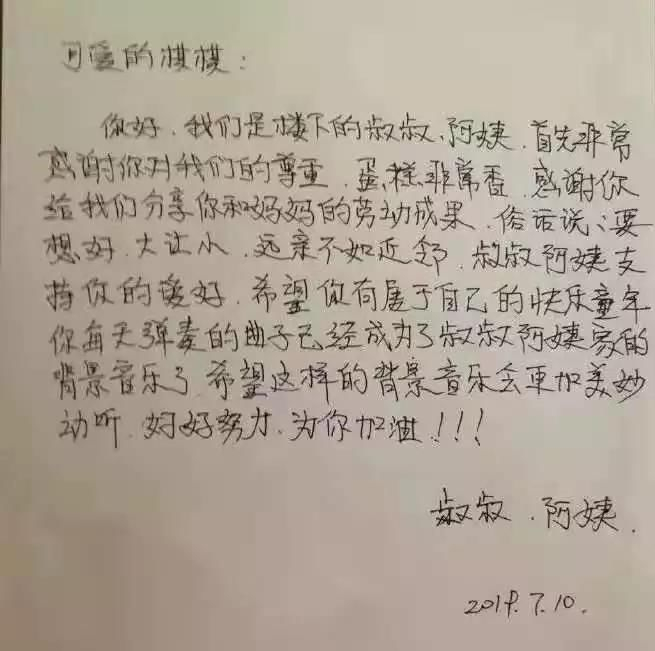 可爱的棋棋:
你好.我们是楼下的叔叔.阿姨.首先非常
感谢你对我们的尊重.蛋糕非常香.感谢你
给我们分享你和妈妈的劳动成果.俗话说:要
想好.大让小.远亲不如近邻.叔叔阿姨支
持你的爱好.希望你有属于自己的快乐童年
你每天弹奏的曲子已经成为了叔叔阿姨家的
背景音乐了.希望这样的背景音乐会更加美妙
动听.好好努力.为你加油!!!
叔叔.阿姨.
2019.7.10.